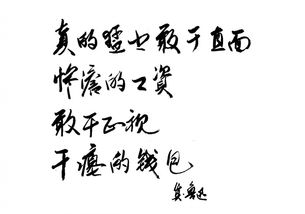 真的猛士敢于直面
惨澹的工資
敢于正视
干瘪的钱包
集鲁迅